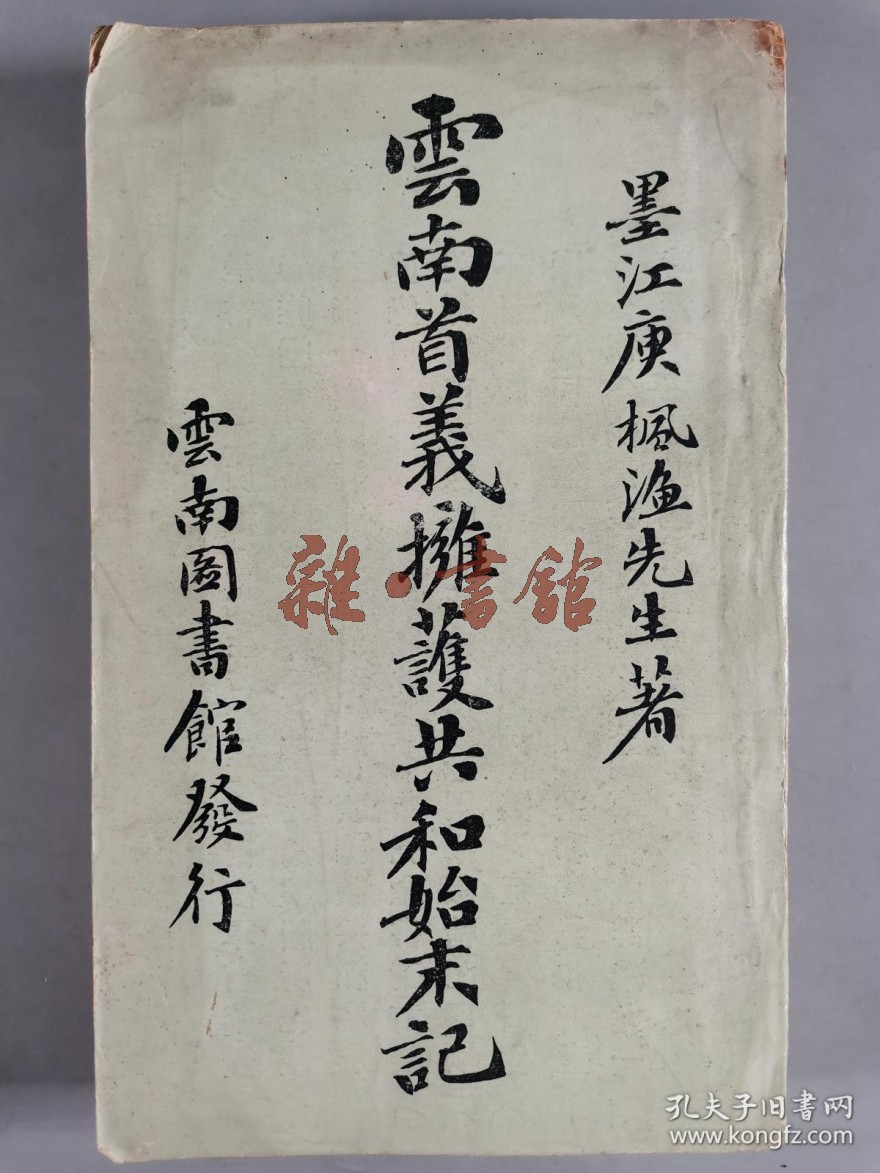 墨江庾楓漁先生著
雲南首義擁護共和始末記
雲南圖書館發行
雜·書館
孔夫子旧书网
www.kongfz.com